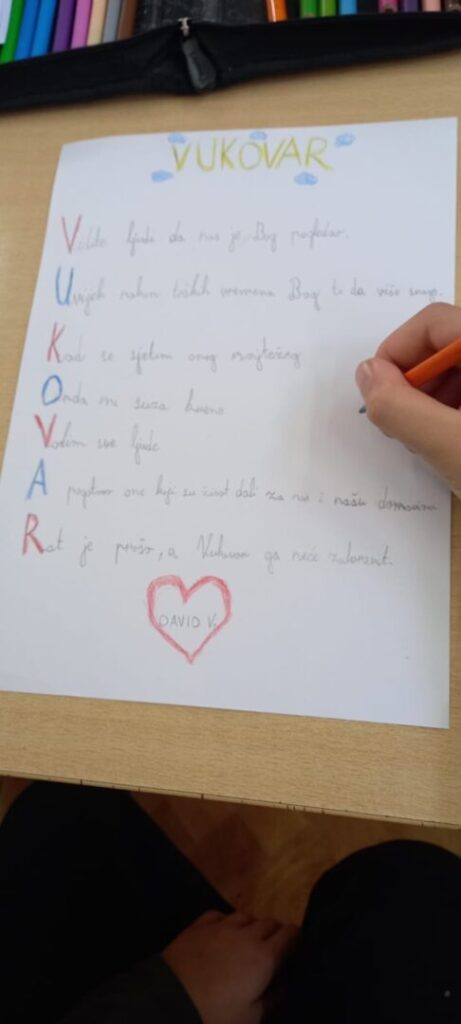 VUKOVAR
Vidite ljudi da nas je Bog pogledao.
Uvijek nakon teških vremena Bog ti da više snage.
Kad se sjetim onog najtežeg
Onda mi suza krene
Volim sve ljude
A pogotovo one koji su život dali za nas i našu domovinu
Rat je prošo, a Vukovar ga neće zaboravit.
DAVID V.